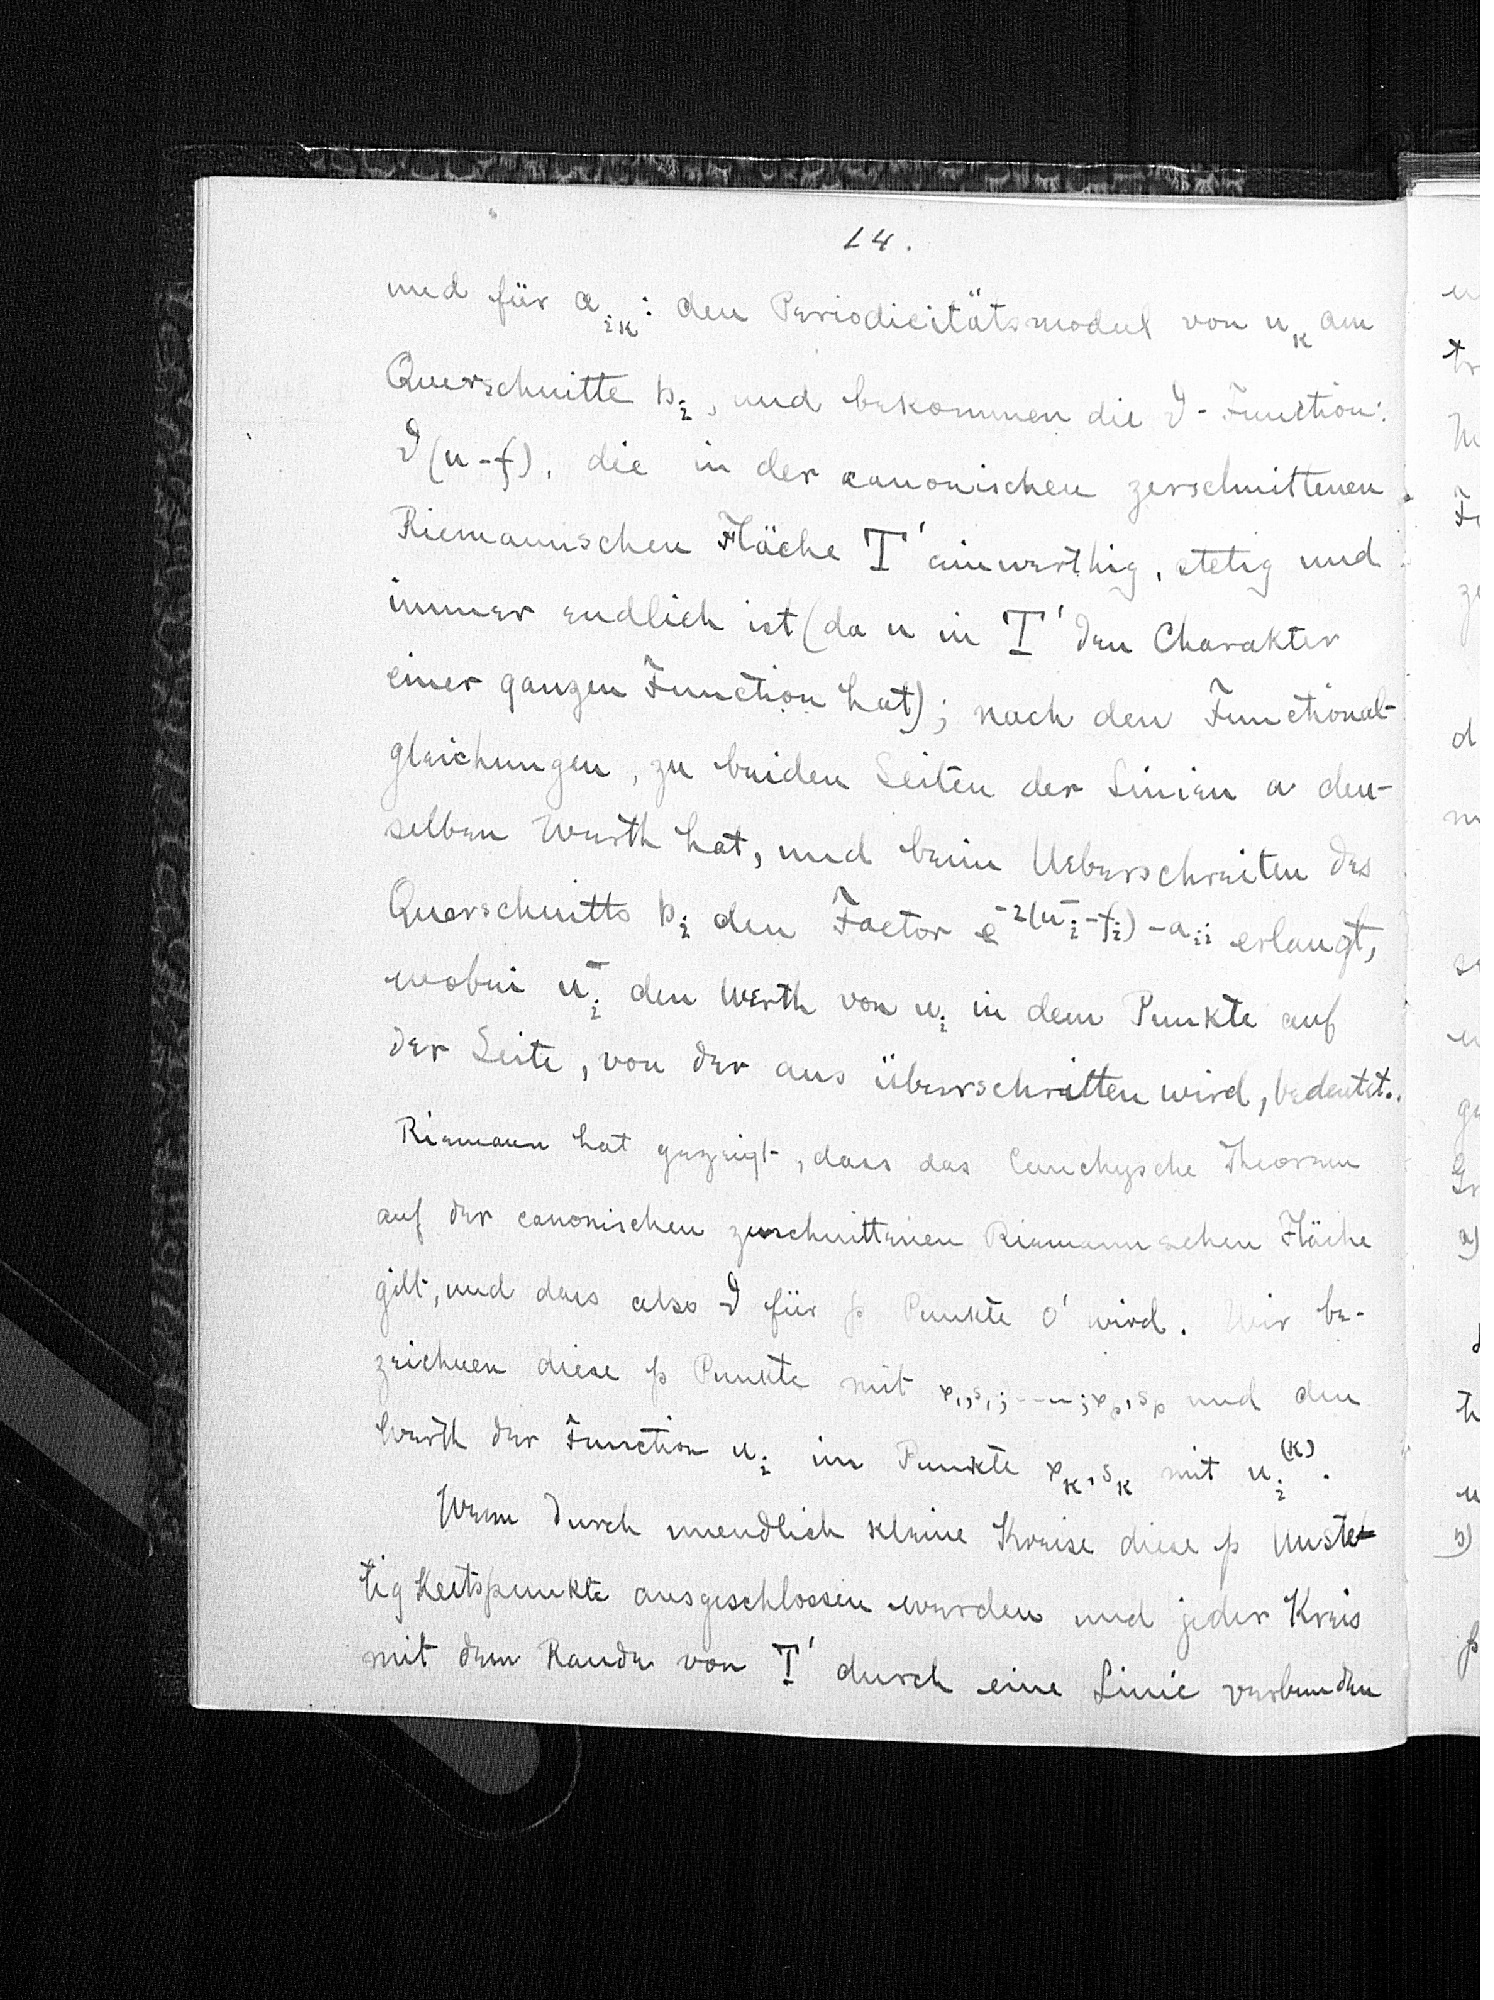 14.
und für a_{ik}: den Periodicitätsmodul von u_k am
Querschnitte b_i, und bekommen die ϑ-Function:
ϑ(u-f), die in der canonischen zerschnittenen
Riemannschen Fläche T' einwerthig, stetig und
immer endlich ist (da u in T' den Charakter
einer ganzen Function hat); nach den Functional-
gleichungen, zu beiden Seiten der Linien a den-
selben Werth hat, und beim Ueberschreiten des
Querschnitts b_i den Factor e^{-2(u_i^- - f_i) - a_{ii}} erlangt,
wobei u_i^- den Werth von u_i in dem Punkte auf
der Seite, von der aus überschritten wird, bedeutet.
Riemann hat gezeigt, dass das Cauchysche Theorem
auf der canonischen zerschnittenen Riemannschen Fläche
gilt, und dass also ϑ für p Punkte 0' wird. Wir be-
zeichnen diese p Punkte mit x_1, s_1; ---; x_p, s_p und den
Werth der Function u_i im Punkte x_k, s_k mit u_i^{(k)}.
Wenn durch unendlich kleine Kreise diese p Unste-
tigkeitspunkte ausgeschlossen werden und jeder Kreis
mit dem Rande von T' durch eine Linie verbunden